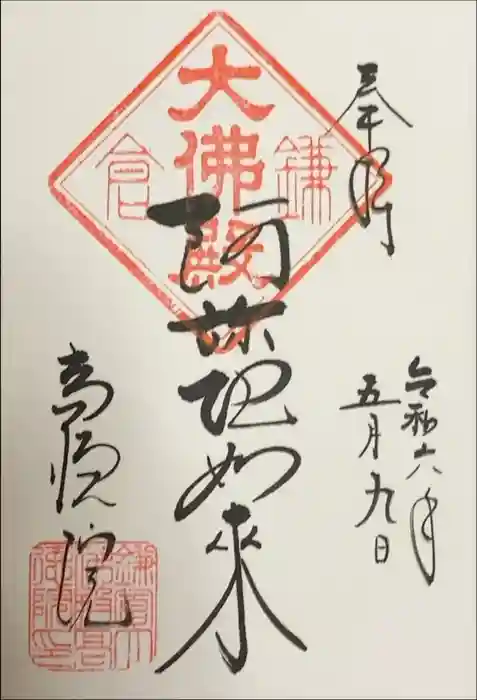 奉拝
令和六年
五月九日
大佛殿
鎌
倉
阿弥陀如来
高徳院